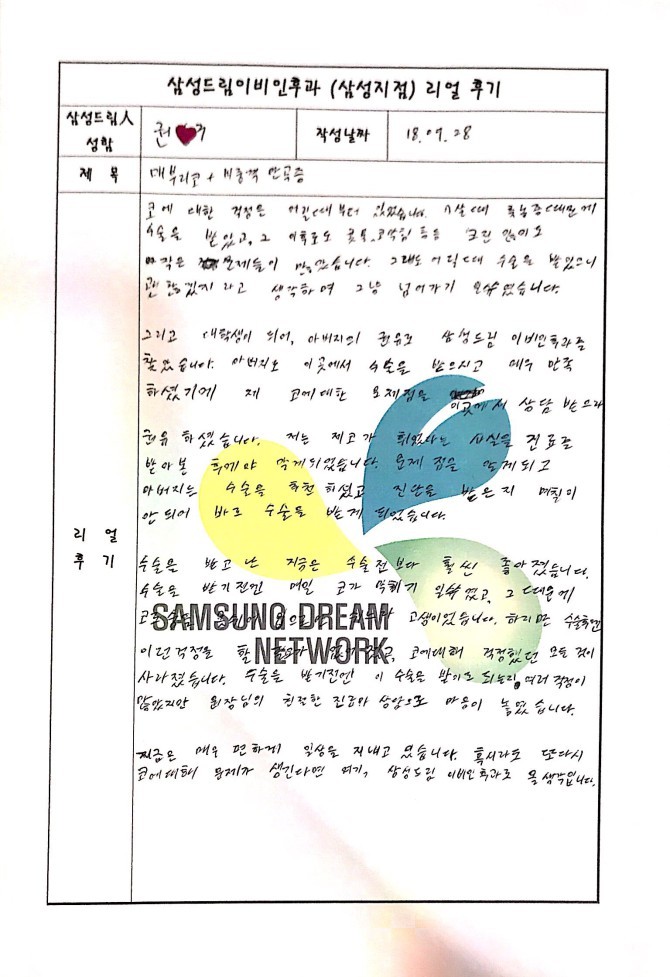 삼성드림이비인후과 (삼성지점) 리얼 후기
삼성드림人
성함
권 구
작성날짜
18.09.28
제 목
매부리코 + 비중격 만곡증
리 얼
후 기
코에 대한 걱정은 어릴때부터 있었습니다. 7살때 축농증때문에
수술을 받았고, 그 이후로도 콧물, 코막힘 등등 코란 많이
문제들이 많았습니다. 그래도 어릴때 수술을 받았으니
괜찮겠지 라고 생각하며 그냥 넘어가기 일쑤였습니다.
그리고 대학생이 되어, 아버지의 권유로 삼성드림 이비인후과를
찾았습니다. 아버지도 이곳에서 수술을 받으시고 매우 만족
하셨기에 제 코에대한 문제점을 이곳에서 상담 받으라
권유 하셨습니다. 저는 제 코가 휘었다는 사실을 진료를
받아본 후에야 알게되었습니다. 문제점을 알게되고
아버지는 수술을 추천하셨고 진단을 받은지 며칠이
안되어 바로 수술을 받게 되었습니다.
수술을 받고 난 지금은 수술전보다 훨씬 좋아졌습니다.
수술을 받기전엔 매일 코가 막히기 일쑤였고, 그 때문에
고생이었습니다. 하지만 수술후엔
이런걱정을 할 없고, 코에대해 걱정했던 모든 것이
사라졌습니다. 수술을 받기전엔 이 수술을 받아도 되는지, 여러 걱정이
많았지만 원장님의 친절한 진료와 상담으로 마음이 놓였습니다.
지금은 매우 편하게 일상을 지내고 있습니다. 혹시라도 또다시
코에대해 문제가 생긴다면 여기, 삼성드림 이비인후과로 올 생각입니다.
SAMSUNG DREAM
NETWORK